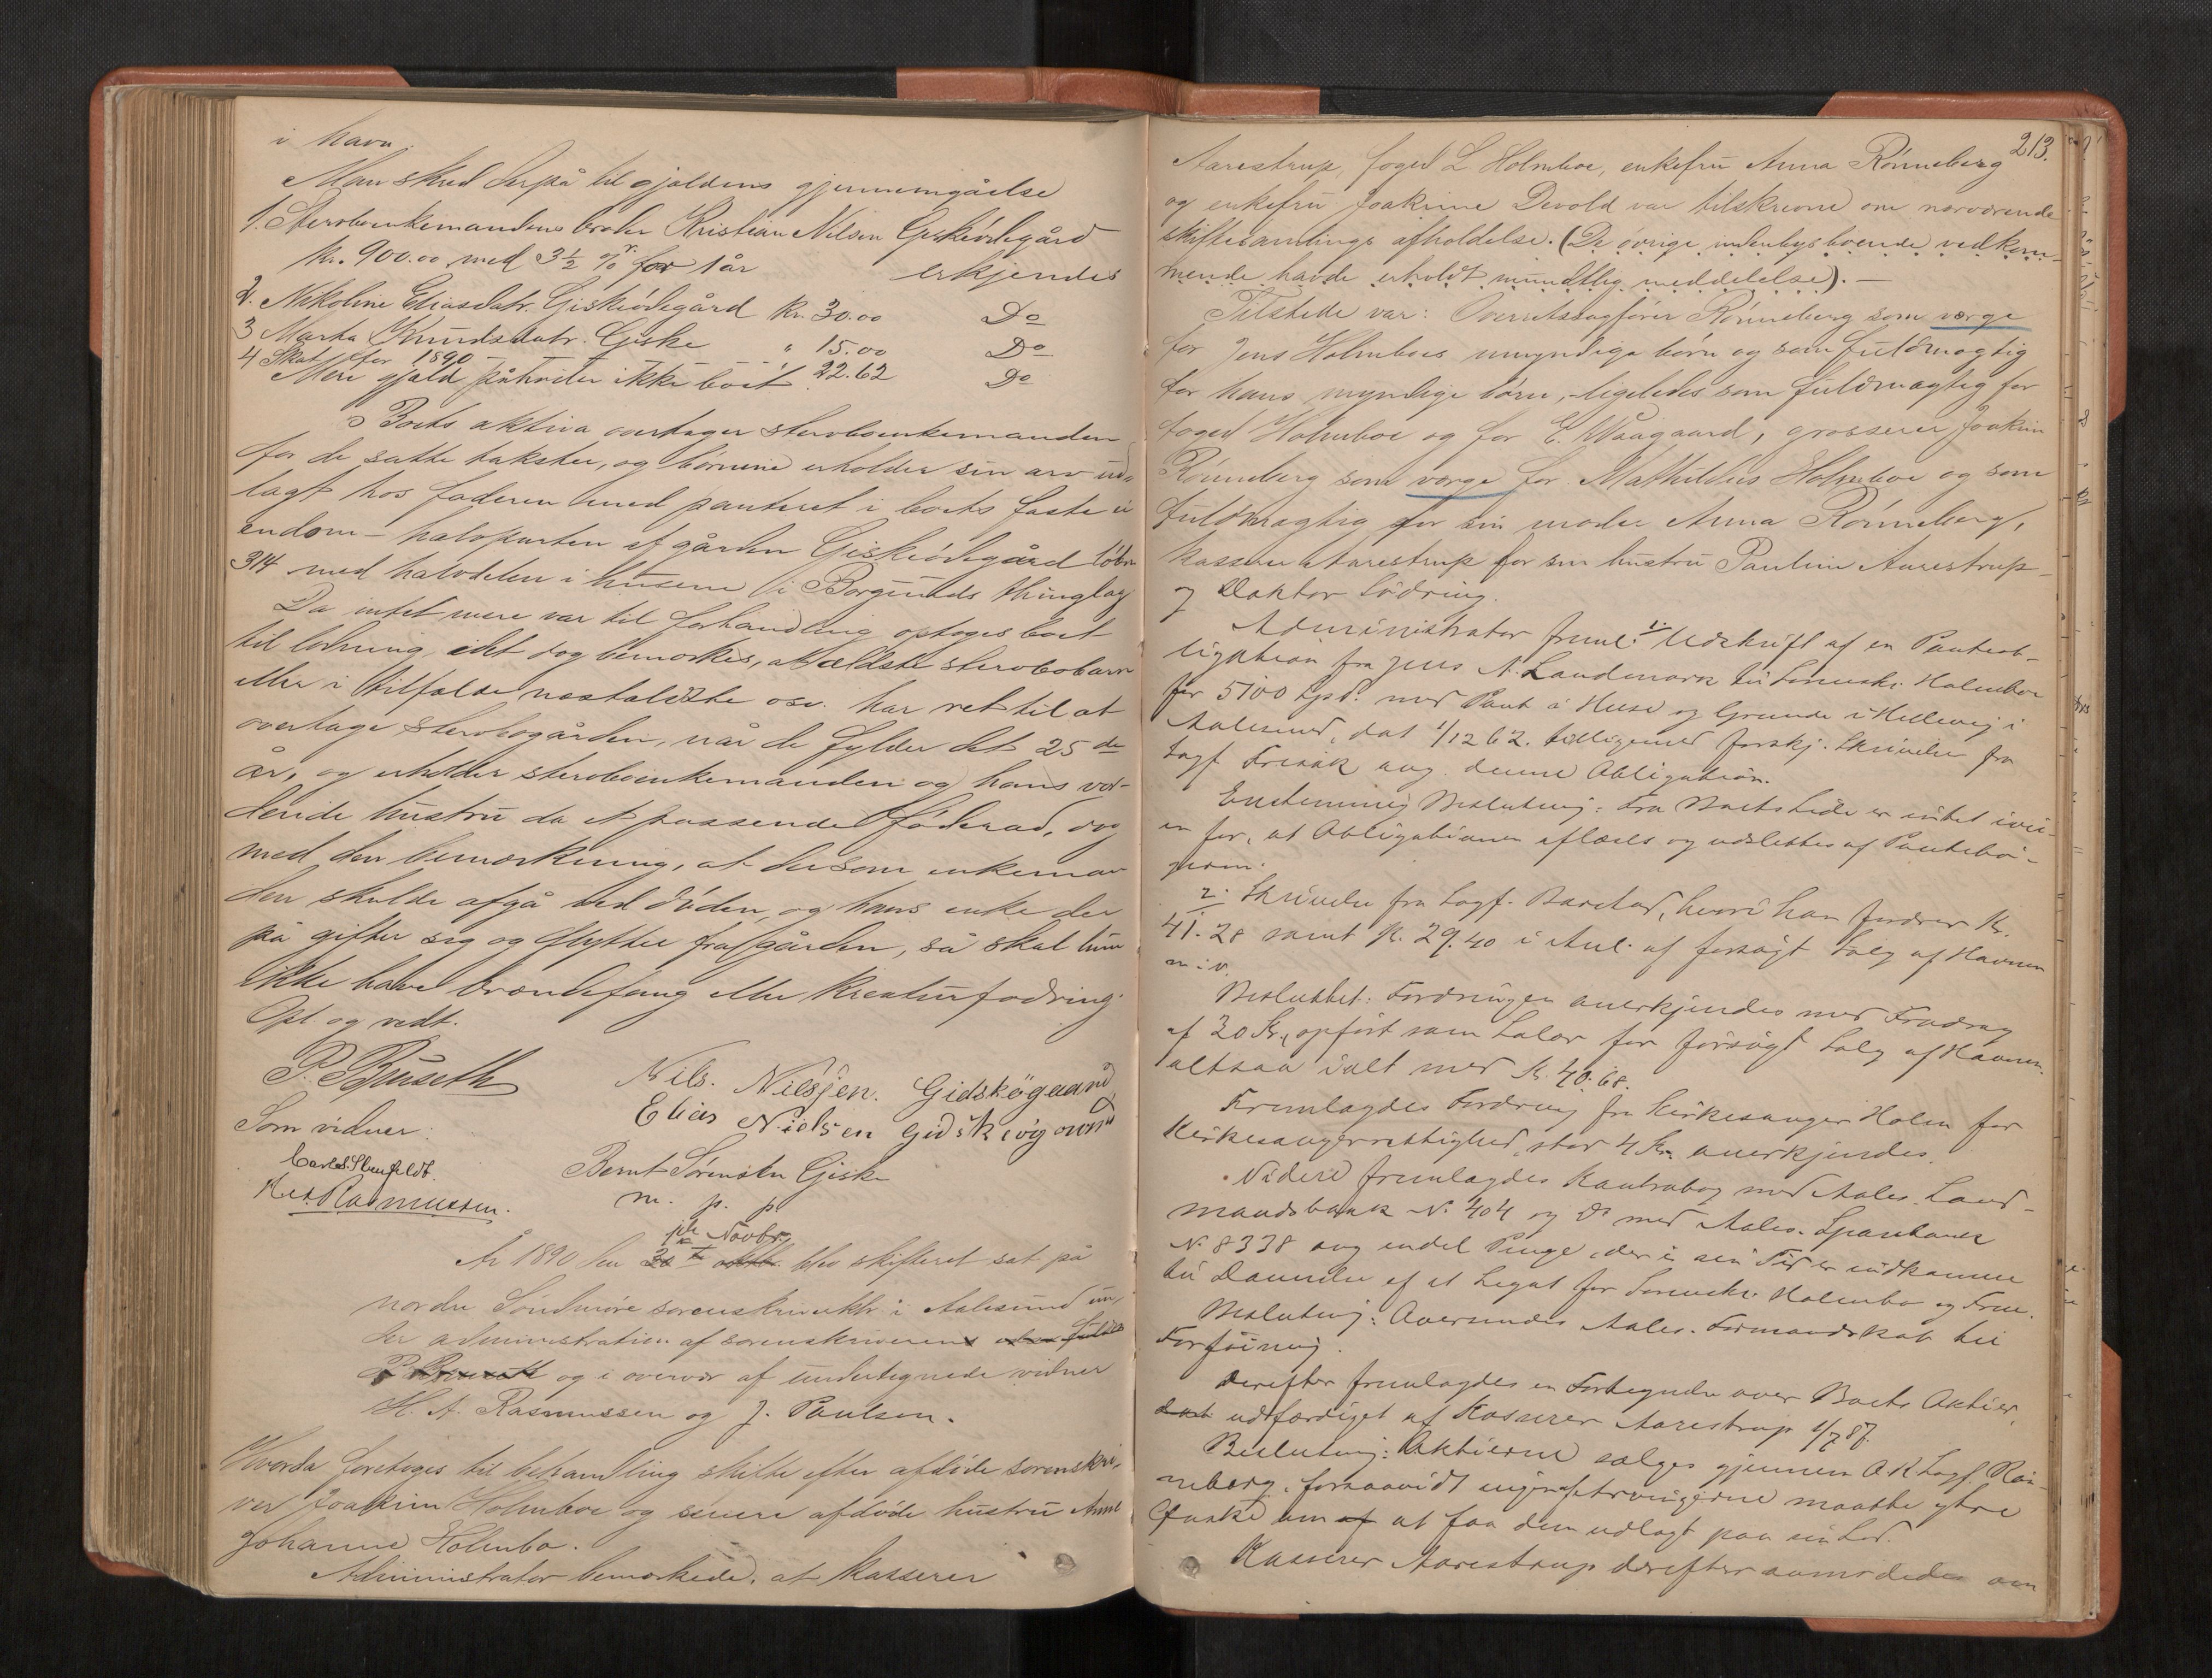 i havn.
Man skred derpå til gjældens gjennemgåelse
1. Stervboenkemandens broder Kristian Nilsen Giskeødegård
Kr. 900.00 med 3½ % r. for 1 år erkjendes
2. Nikoline Eliasdatr. Giskeødegård Kr. 30.00 Do
3 Marta Knudsdatr. Giske " 15.00 Do
4 Skat for 1890 - " 22.62 Do
Mere gjæld påhviler ikke boet
Boets aktiva overtager stervboenkemanden
for de satte takster, og børnene erholder sin arv ud-
lagt hos faderen med panteret i boets faste ei
endom - halvparten af gården Giskeødegård løbno
314 med halvdelen i husene i Borgunds thinglag
Da intet mere var til forhandling optoges boet
til lodning, idet dog bemærkes, at ældste stervbobarn
eller i tilfælde næstældste osv. har ret til at
overtage stervbogården, når de fylder det 25 de
år, og erholder stervboenkemanden og hans vor-
dende hustru da et passende føderåd, dog
med den bemærkning, at dersom enkeman
den skulde afgå ved døden, og hans enke der
på gifter sig og flytter fra gården, så skal hun
ikke have brændefang eller kreaturfodring.
Opl. og vedt.
P. Buseth Nils. Nilsjen. Gidskögaard
Elias Nielsen Gidskiögaard
Som vidner:
Carl S. Stenfeldt. Bernt Sørensen Giske
H. A. Rasmussen. m. p. p.
1ste Novbr.
År 1890 den 30 te oktbr. blev skifteret sat på
nordre Søndmøre sorenskriverktr. i Aalesund un-
der administration af sorenskriveren
P Buseth og i overvær af undertegnede vidner
H. A. Rasmussen og J. Paulsen.
Hvorda foretoges til behandling skifte efter afdøde sorenskri-
ver Joakim Holmboe og senere afdøde hustru Anne
Johanne Holmbo.
Administrator bemærkede, at kasserer
213.
Aarestrup, foged L Holmboe, enkefru Anna Rønneberg
og enkefru Joakime Devold var tilskrevne om nærværende
skiftesamlings afholdelse. (De øvrige indenbysboende vedkom-
mende havde erholdt mundtlig meddelelse). -
Tilstede var: Overretssagfører Rønneberg som værge
for Jens Holmboes umyndige børn og som fuldmægtig
for hans myndige børn, - ligeledes som fuldmægtig for
foged Holmboe og for E. Waagaard, grosserer Joakim
Rønneberg som værge for Mathildus Holmboe og som
fuldmægtig for sin moder Anna Rønneberg,
kasserer Aarestrup for sin hustru Pauline Aarestrup -
og Doktor Lødring.
Administrator freml. 1. Udskrift af en Panteob-
ligation fra Jens A. Landmark til Sorenskr. Holmboe
for 5100 Spd. med Pant i Huse og Grunde i Hellevig i
Aalesund, dat 1/12 62. tilligemed forskj. Skrivelser fra
Sagf Frisak ang. denne Obligation.
Enstemmig Beslutning: Fra Boets Side er intet ivei-
en for, at Obligationen aflæses og udslettes af Pantebø-
gerne.
2. Skrivelse fra Sagf. Barstad, hvori han fordrer Kr.
41.28 samt Kr. 29.40 i Anl. af forsøgt Salg af Havnen
m. v.
Besluttet: Fordringen anerkjendes med Fradrag
af 30 Kr., opført som Salær for forsøgt Salg af Havnen.
altsaa ialt med Kr. 40.68.
Fremlagdes Fordring fra Kirkesanger Holm for
Kirkesangerrettighed, stor 4 Kr. anerkjendes.
Videre fremlagdes Kontrabog med Aales. Land-
mandsbank N. 404 og Do med Aales. Sparebank
N. 8338 ang endel Penge, der i sin Tid er indkomne
til Dannelse af et Legat for Sorenskr. Holmbo og Frue.
Beslutning: Oversendes Aales. Formandskab til
Forføining.
Derefter fremlagdes en Fortegnelse over Boets Aktier,
dat udfærdiget af Kasserer Aarestrup 1/7 87.
Beslutning: Aktierne sælges gjennem O R Sagf. Røn-
neberg, forsaavidt ingen af arvingerne maatte ytre
Ønske om af at faa dem udlagt paa sin Lod.
Kasserer Aarestrup derefter anmodedes om